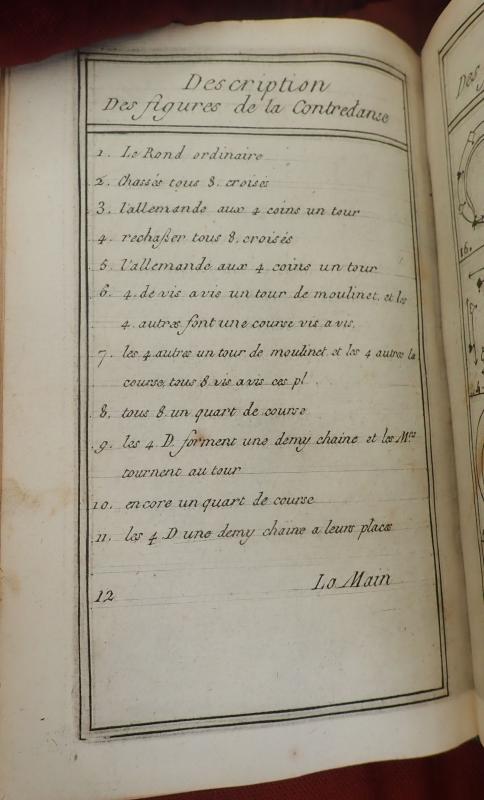 Description
Des figures de la Contredanse
1. Le Rond ordinaire
2. Chassés tous 8. croisés
3. l'allemande aux 4 coins un tour
4. rechaßer tous 8. croisés
5. l'allemande aux 4 coins un tour
6. 4. de vis a vis un tour de moulinet, et les
4. autres font une course vis a vis.
7. les 4 autres un tour de moulinet et les 4 autres la
course, tous 8 vis a vis ces pl.
8, tous 8 un quart de course
9. les 4 D. forment une demy chaine et les M.rs
tournent au tour
10. encore un quart de course
11. les 4 D une demy chaine a leurs places
La Main
12
Des
16.